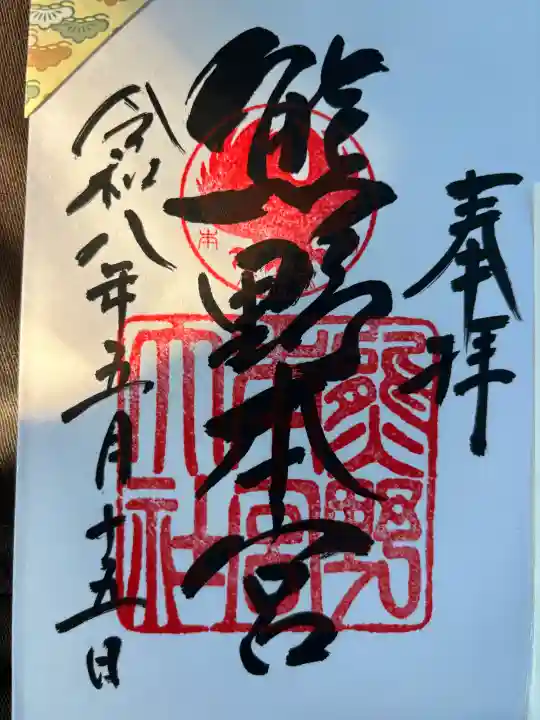 奉拝
熊野本宮
令和八年五月十五日
本
熊野
本宮
大社